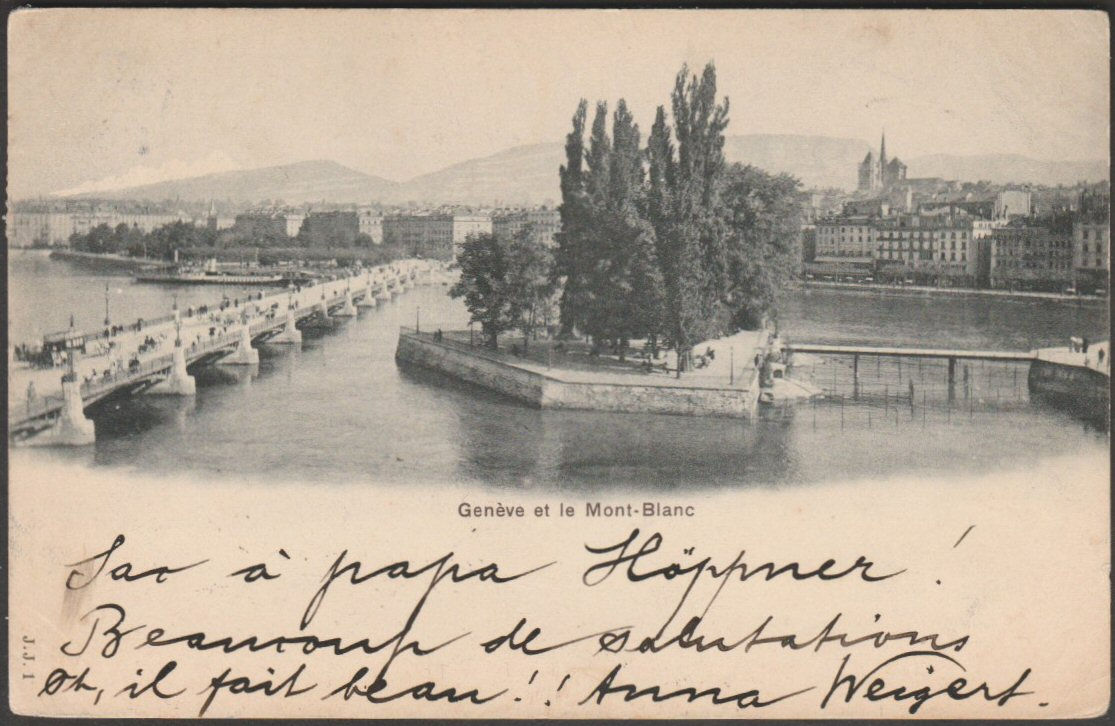 Genève et le Mont-Blanc
Sac à papa Höppner!
Beaucoup de salutations
il fait beau!! Anna Weigert.
J.J. 1